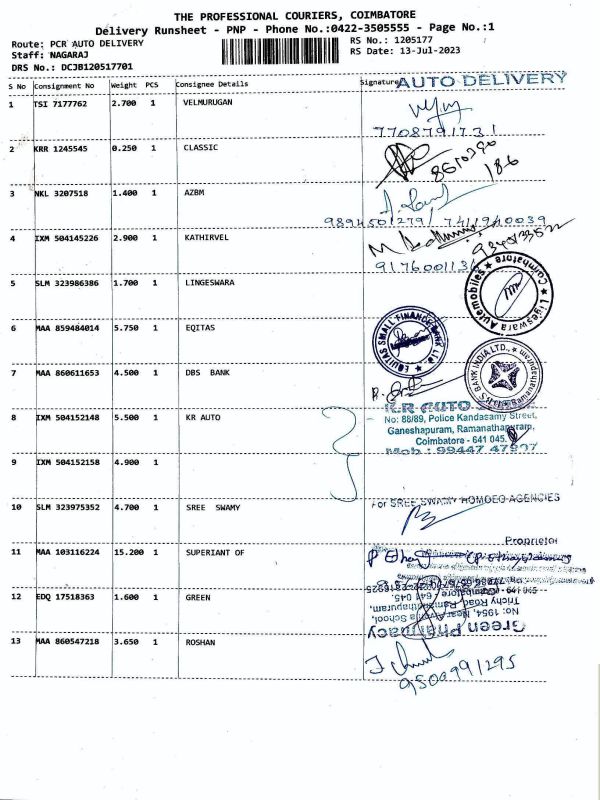 THE PROFESSIONAL COURIERS, COIMBATORE
Delivery Runsheet - PNP - Phone No.:0422-3505555 - Page No.:1
Route: PCR AUTO DELIVERY
RS No.: 1205177
Staff: NAGARAJ
RS Date: 13-Jul-2023
DRS No.: DCJB120517701
S No Consignment No Weight PCS Consignee Details Signature AUTO DELIVERY
1 TSI 7177762 2.700 1 VELMURUGAN
7708791731
2 KRR 1245545 0.250 1 CLASSIC
186
3 NKL 3207518 1.400 1 AZBM
9894501279/ 7411940039
4 IXM 504145226 2.900 1 KATHIRVEL
9176001136
5 SLM 323986386 1.700 1 LINGESWARA
Ligeswara Automobiles ★ Coimbatore ★
6 MAA 859484014 5.750 1 EQITAS
EQUITAS SMALL FINANCE BANK LTD
7 MAA 860611653 4.500 1 DBS BANK
BANK INDIA LTD.,
Ramanathapuram
8 IXM 504152148 5.500 1 KR AUTO
K.R AUTO
No: 88/89, Police Kandasamy Street,
Ganeshapuram, Ramanathapuram,
Coimbatore - 641 045.
Mob : 99447 47907
9 IXM 504152158 4.900 1
10 SLM 323975352 4.700 1 SREE SWAMY
For SREE SWAMY HOMOEO AGENCIES
Proprietor
11 MAA 103116224 15.200 1 SUPERIANT OF
12 EDQ 17518363 1.600 1 GREEN
Green Pharmacy
No: 1954, Near Alvernia School,
Trichy Road, Ramanathapuram,
Coimbatore - 641 045.
13 MAA 860547218 3.650 1 ROSHAN
9500991295